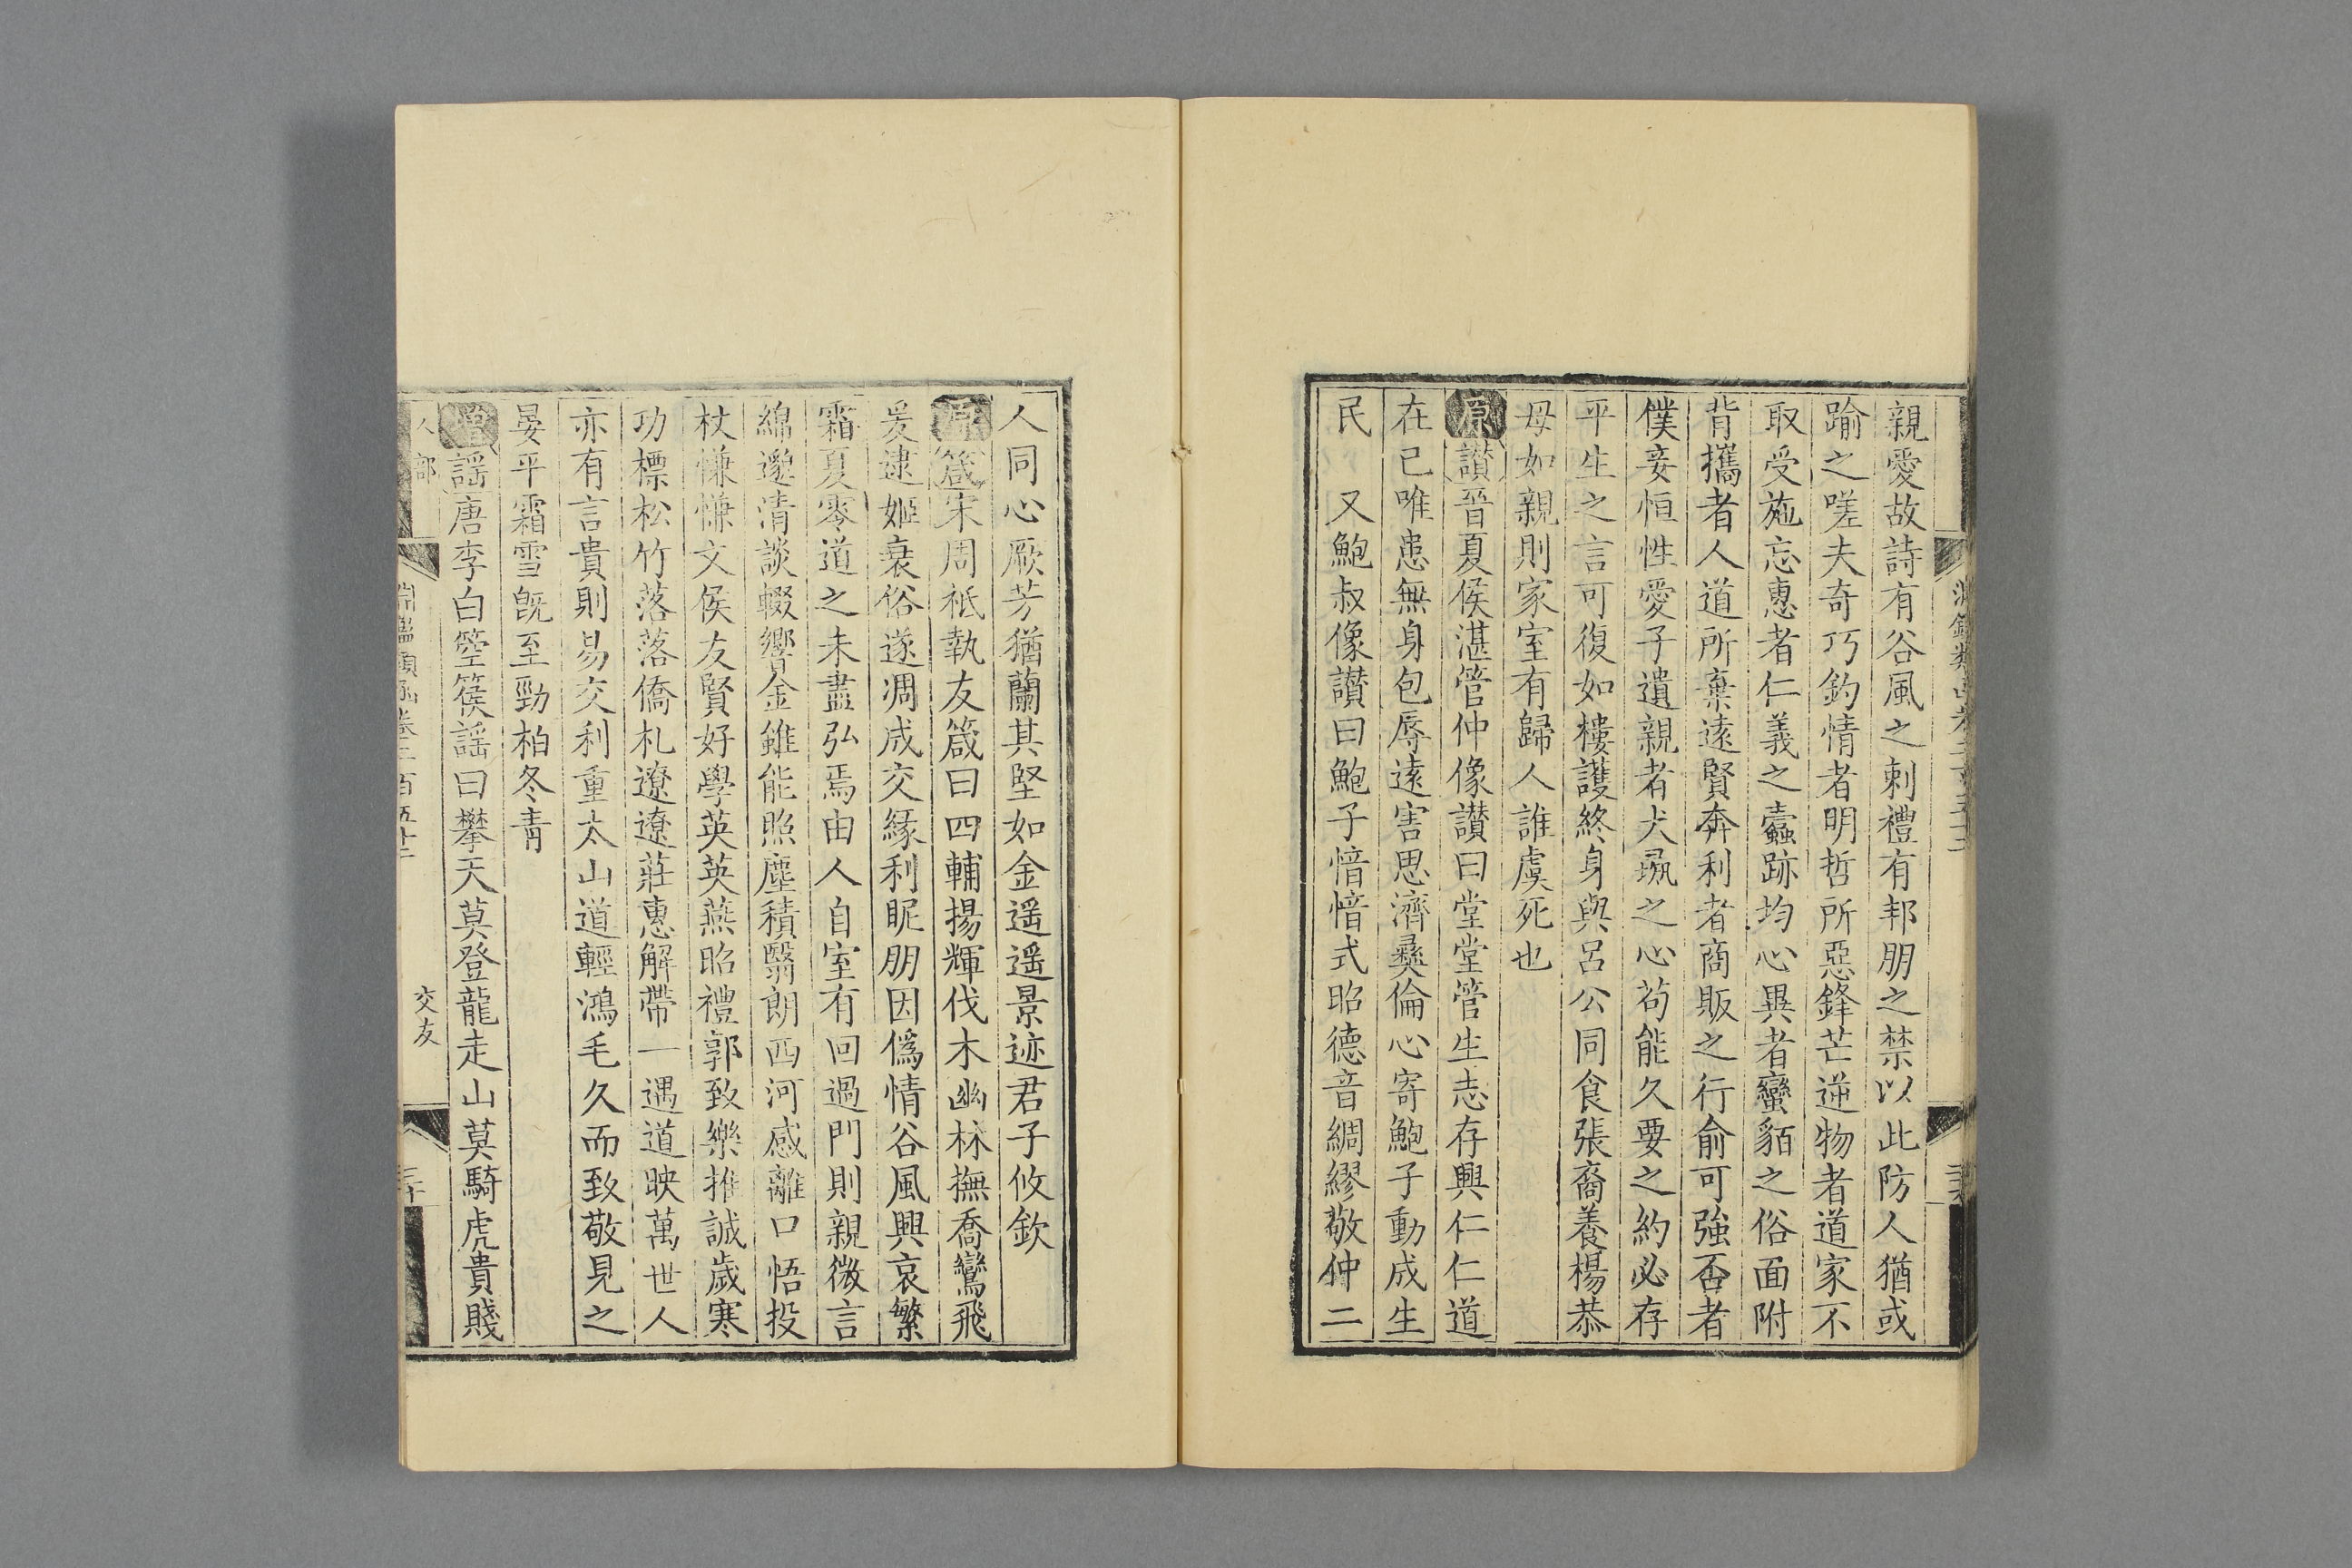 親愛故詩有谷風之刺禮有邦朋之禁以此防人猶或
踰之嗟夫奇巧釣情者明哲所惡鋒芒逆物者道家不
取受施忘惠者仁義之蠹跡均心異者蠻貊之俗面附
背攜者人道所棄遠賢奔利者商販之行俞可強否者
僕妾恒性愛子遺親者犬彘之心苟能久要之約必存
平生之言可復如樓護終身與呂公同食張裔養楊恭
母如親則家室有歸人誰虞死也
原讃晉夏侯湛管仲像讃曰堂堂管生志存興仁仁道
在已唯患無身包辱遠害思濟彞倫心寄鮑子動成生
民 又鮑叔像讃曰鮑子愔愔式昭德音綢繆敬仲二
人同心厥芳猶蘭其堅如金遥遥景迹君子攸欽
原箴宋周祗執友箴曰四輔揚輝伐木幽林撫喬鸞飛
爰逮姬衰俗遂凋成交緣利昵朋因僞情谷風興哀繁
霜夏零道之未盡弘焉由人自室有回過門則親微言
綿邈清談輟響金錐能照塵積翳朗西河感離口悟投
杖慊慊文侯友賢好學英英燕昭禮郭致樂推誠歲寒
功標松竹落落僑札遼遼莊惠解帶一遇道映萬世人
亦有言貴則易交利重太山道輕鴻毛久而致敬見之
晏平霜雪旣至勁柏冬青
增謡唐李白箜篌謡曰攀天莫登龍走山莫騎虎貴賤
人部
淵鑑類函卷二百五十二
交友
三十